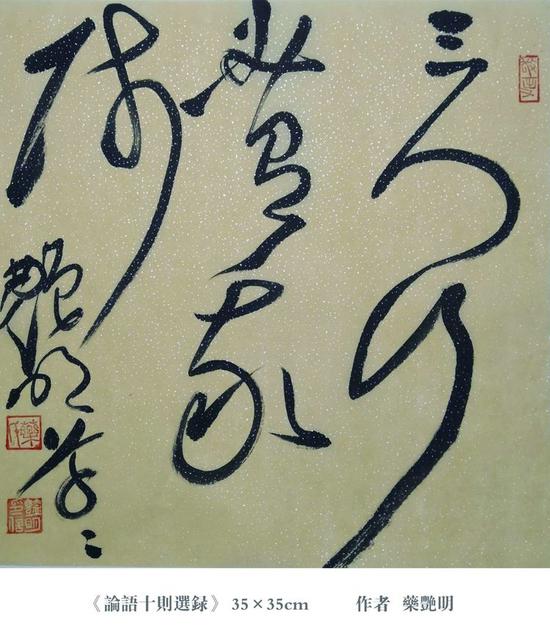 三人行
必有我
師
艷明
《論語十則選録》 35×35cm 作者 藥艷明